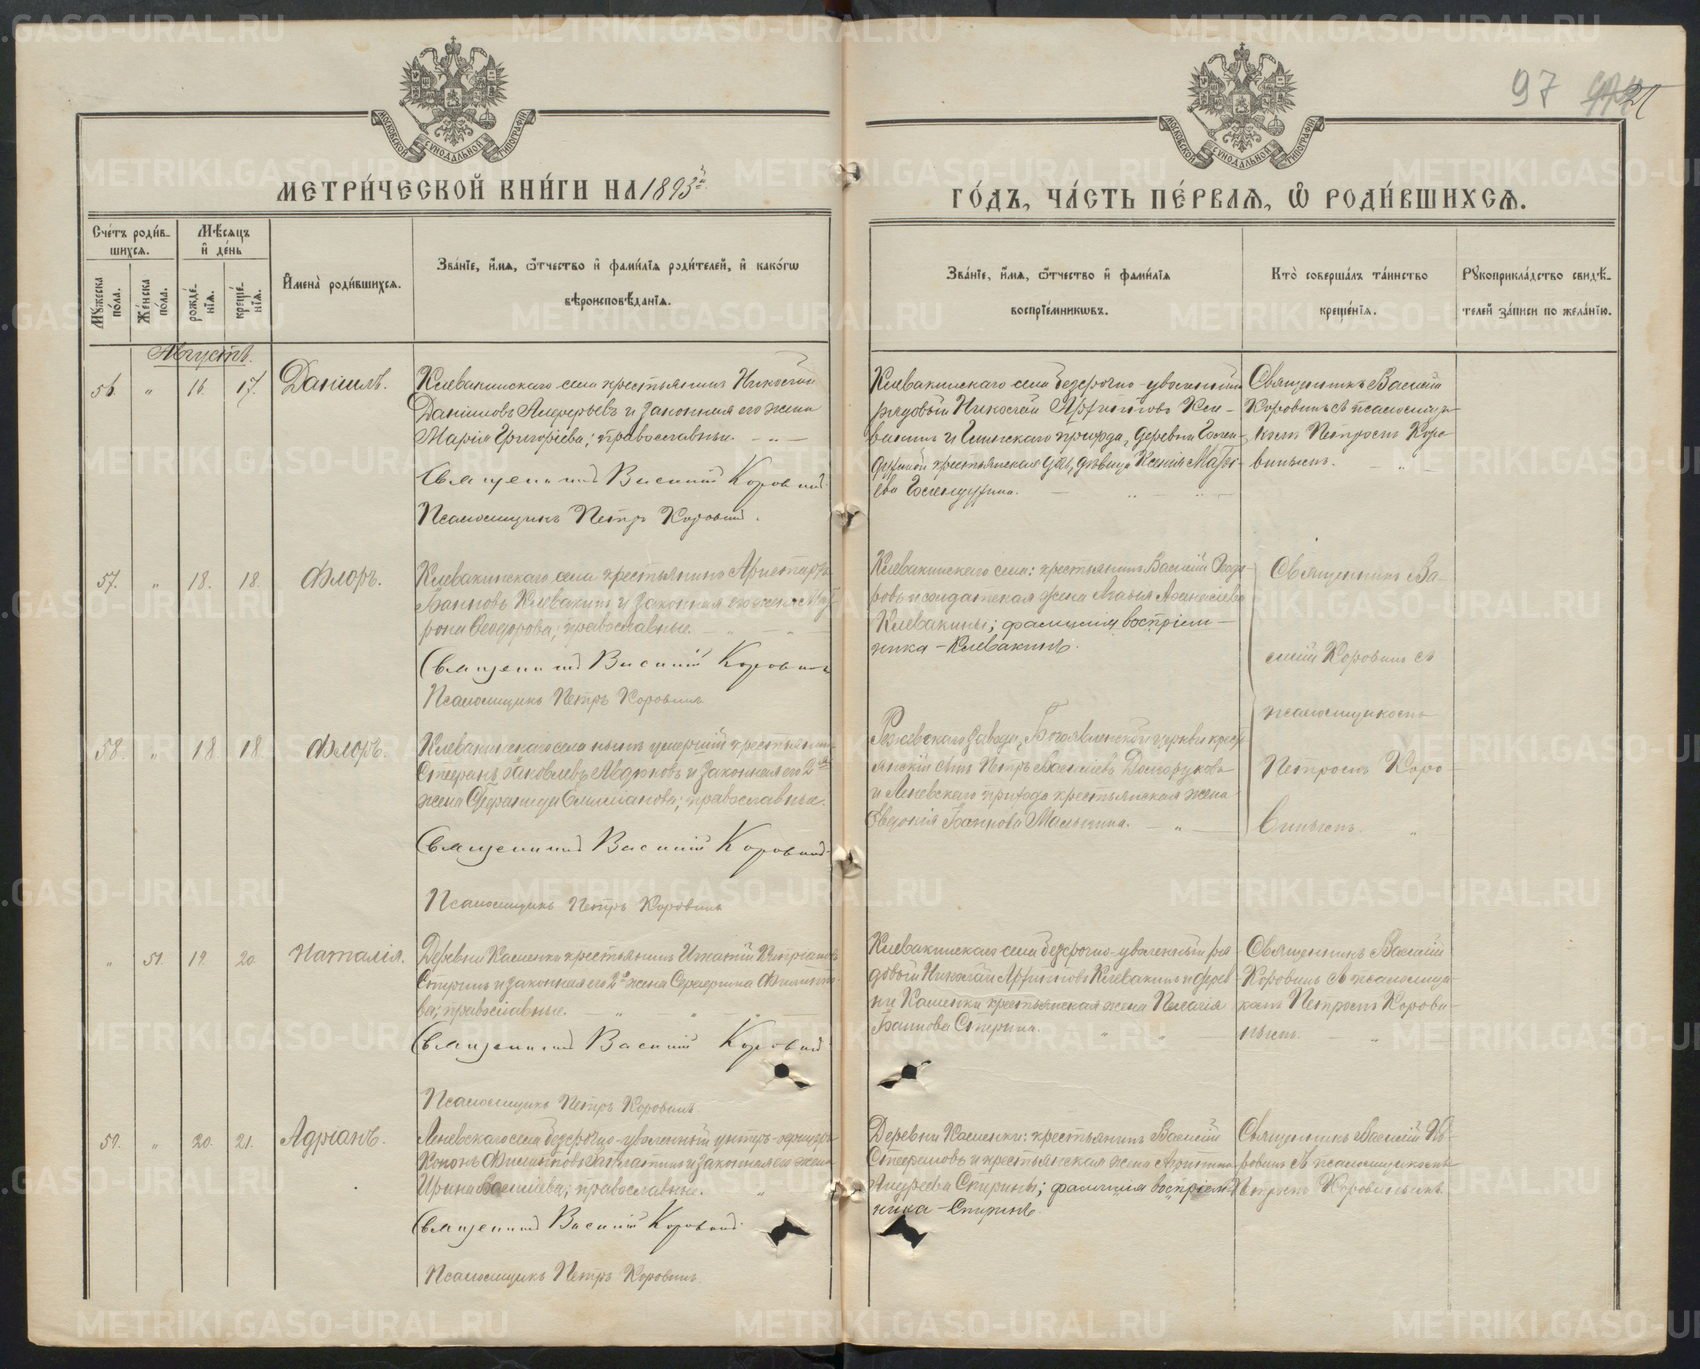 97
МЕТРИ́ЧЕСКОЙ КНИ́ГИ НА 1893й
ГО́ДЪ, ЧА́СТЬ ПЕ́РВАЯ, Ѡ РОДИ́ВШИХСЯ.
Сче́тъ роди́в-
шихся.
Мѣсяцъ
и де́нь
Мꙋжеска по́ла.
Же́нска по́ла.
рожде́-
нїя.
креще́-
нїя.
Имена̀ роди́вшихся.
Зва́нїе, и́мя, ѻ́тчество и фами́лїя роди́телей, и како́гѡ
вѣроисповѣ́данїя.
Зва́нїе, и́мя, ѻ́тчество и фами́лїя
воспрїе́мникѡвъ.
Кто̀ соверша́лъ та́инство
креще́нїя.
Рꙋкоприкла́дство свидѣ́-
телей за́писи по жела́нїю.
Августъ.
56. " 16. 17. Даніилъ.
Клевакинскаго села крестьянинъ Николай
Даніиловъ Алферьевъ и законная его жена
Марія Григоріева; православные.
Священникъ Василій Коровинъ.
Псаломщикъ Петръ Коровинъ.
Клевакинскаго села безсрочно-уволенный
рядовый Николай Архиповъ Кле-
вакинъ и Глинскаго прихода, деревни
крестьянская дочь, дѣвица Ксенія Матѳі-
ева
Священникъ Василій
Коровинъ съ псаломщи-
комъ Петромъ Коро-
винымъ.
57. " 18. 18. Флоръ.
Клевакинскаго села крестьянинъ Аристархъ
Іоанновъ Клевакинъ и законная его жена Мат-
рона Ѳеодорова; православные.
Священникъ Василій Коровинъ
Псаломщикъ Петръ Коровинъ
Клевакинскаго села: крестьянинъ Василій
и солдатская жена Аѳанасіева
Клевакины; фамилія воспріем-
ника - Клевакинъ.
Священникъ Ва-
силій Коровинъ съ
псаломщикомъ
Петромъ Коро-
винымъ. "
58. " 18 18. Флоръ.
Клевакинскаго села нынѣ умершій крестьянинъ
Стефанъ Іаковлевъ Авдюковъ и законная его 2я
жена; православные.
Священникъ Василій Коровинъ.
Псаломщикъ Петръ Коровинъ
Режевскаго завода, Богоявленской церкви кресть-
янскій сынъ Петръ Алексіевъ Долгоруковъ
и Леневскаго прихода крестьянская жена
Евдокія Іоаннова Малыгина.
" 51. 19. 20. Наталія.
Деревни Каменки крестьянинъ Игнатій Кипріановъ
Спиринъ и законная его 2я жена Филиппо-
ва; православные.
Священникъ Василій Коровинъ
Псаломщикъ Петръ Коровинъ.
Клевакинскаго села безсрочно-уволенный ря-
довый Николай Архиповъ Клевакинъ и дерев-
ни Каменки крестьянская жена Пелагія
Іоаннова Спирина.
Священникъ Василій
Коровинъ съ псаломщи-
комъ Петромъ Корови-
нымъ.
59. " 20. 21. Адріанъ.
Леневскаго села безсрочно-уволенный унтеръ-офицеръ
Кононъ Филипповъ и законная его жена
Ирина Василіева; православные.
Священникъ Василій Коровинъ.
Псаломщикъ Петръ Коровинъ.
Деревни Каменки: крестьянинъ Василій
Стефановъ и крестьянская жена
Андреева Спирины; фамилія воспріем-
ника - Спиринъ.
Священникъ Василій Ко-
ровинъ съ псаломщикомъ
Петромъ Коровинымъ.
METRIKI.GASO-URAL.RU